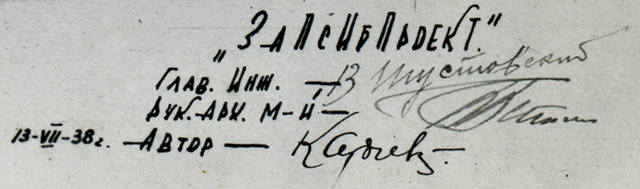 „ЗапСибПроект."
Глав. Инж. — Шустовский
Рук. Арх. М-й —
13-VII-38г. — Автор —